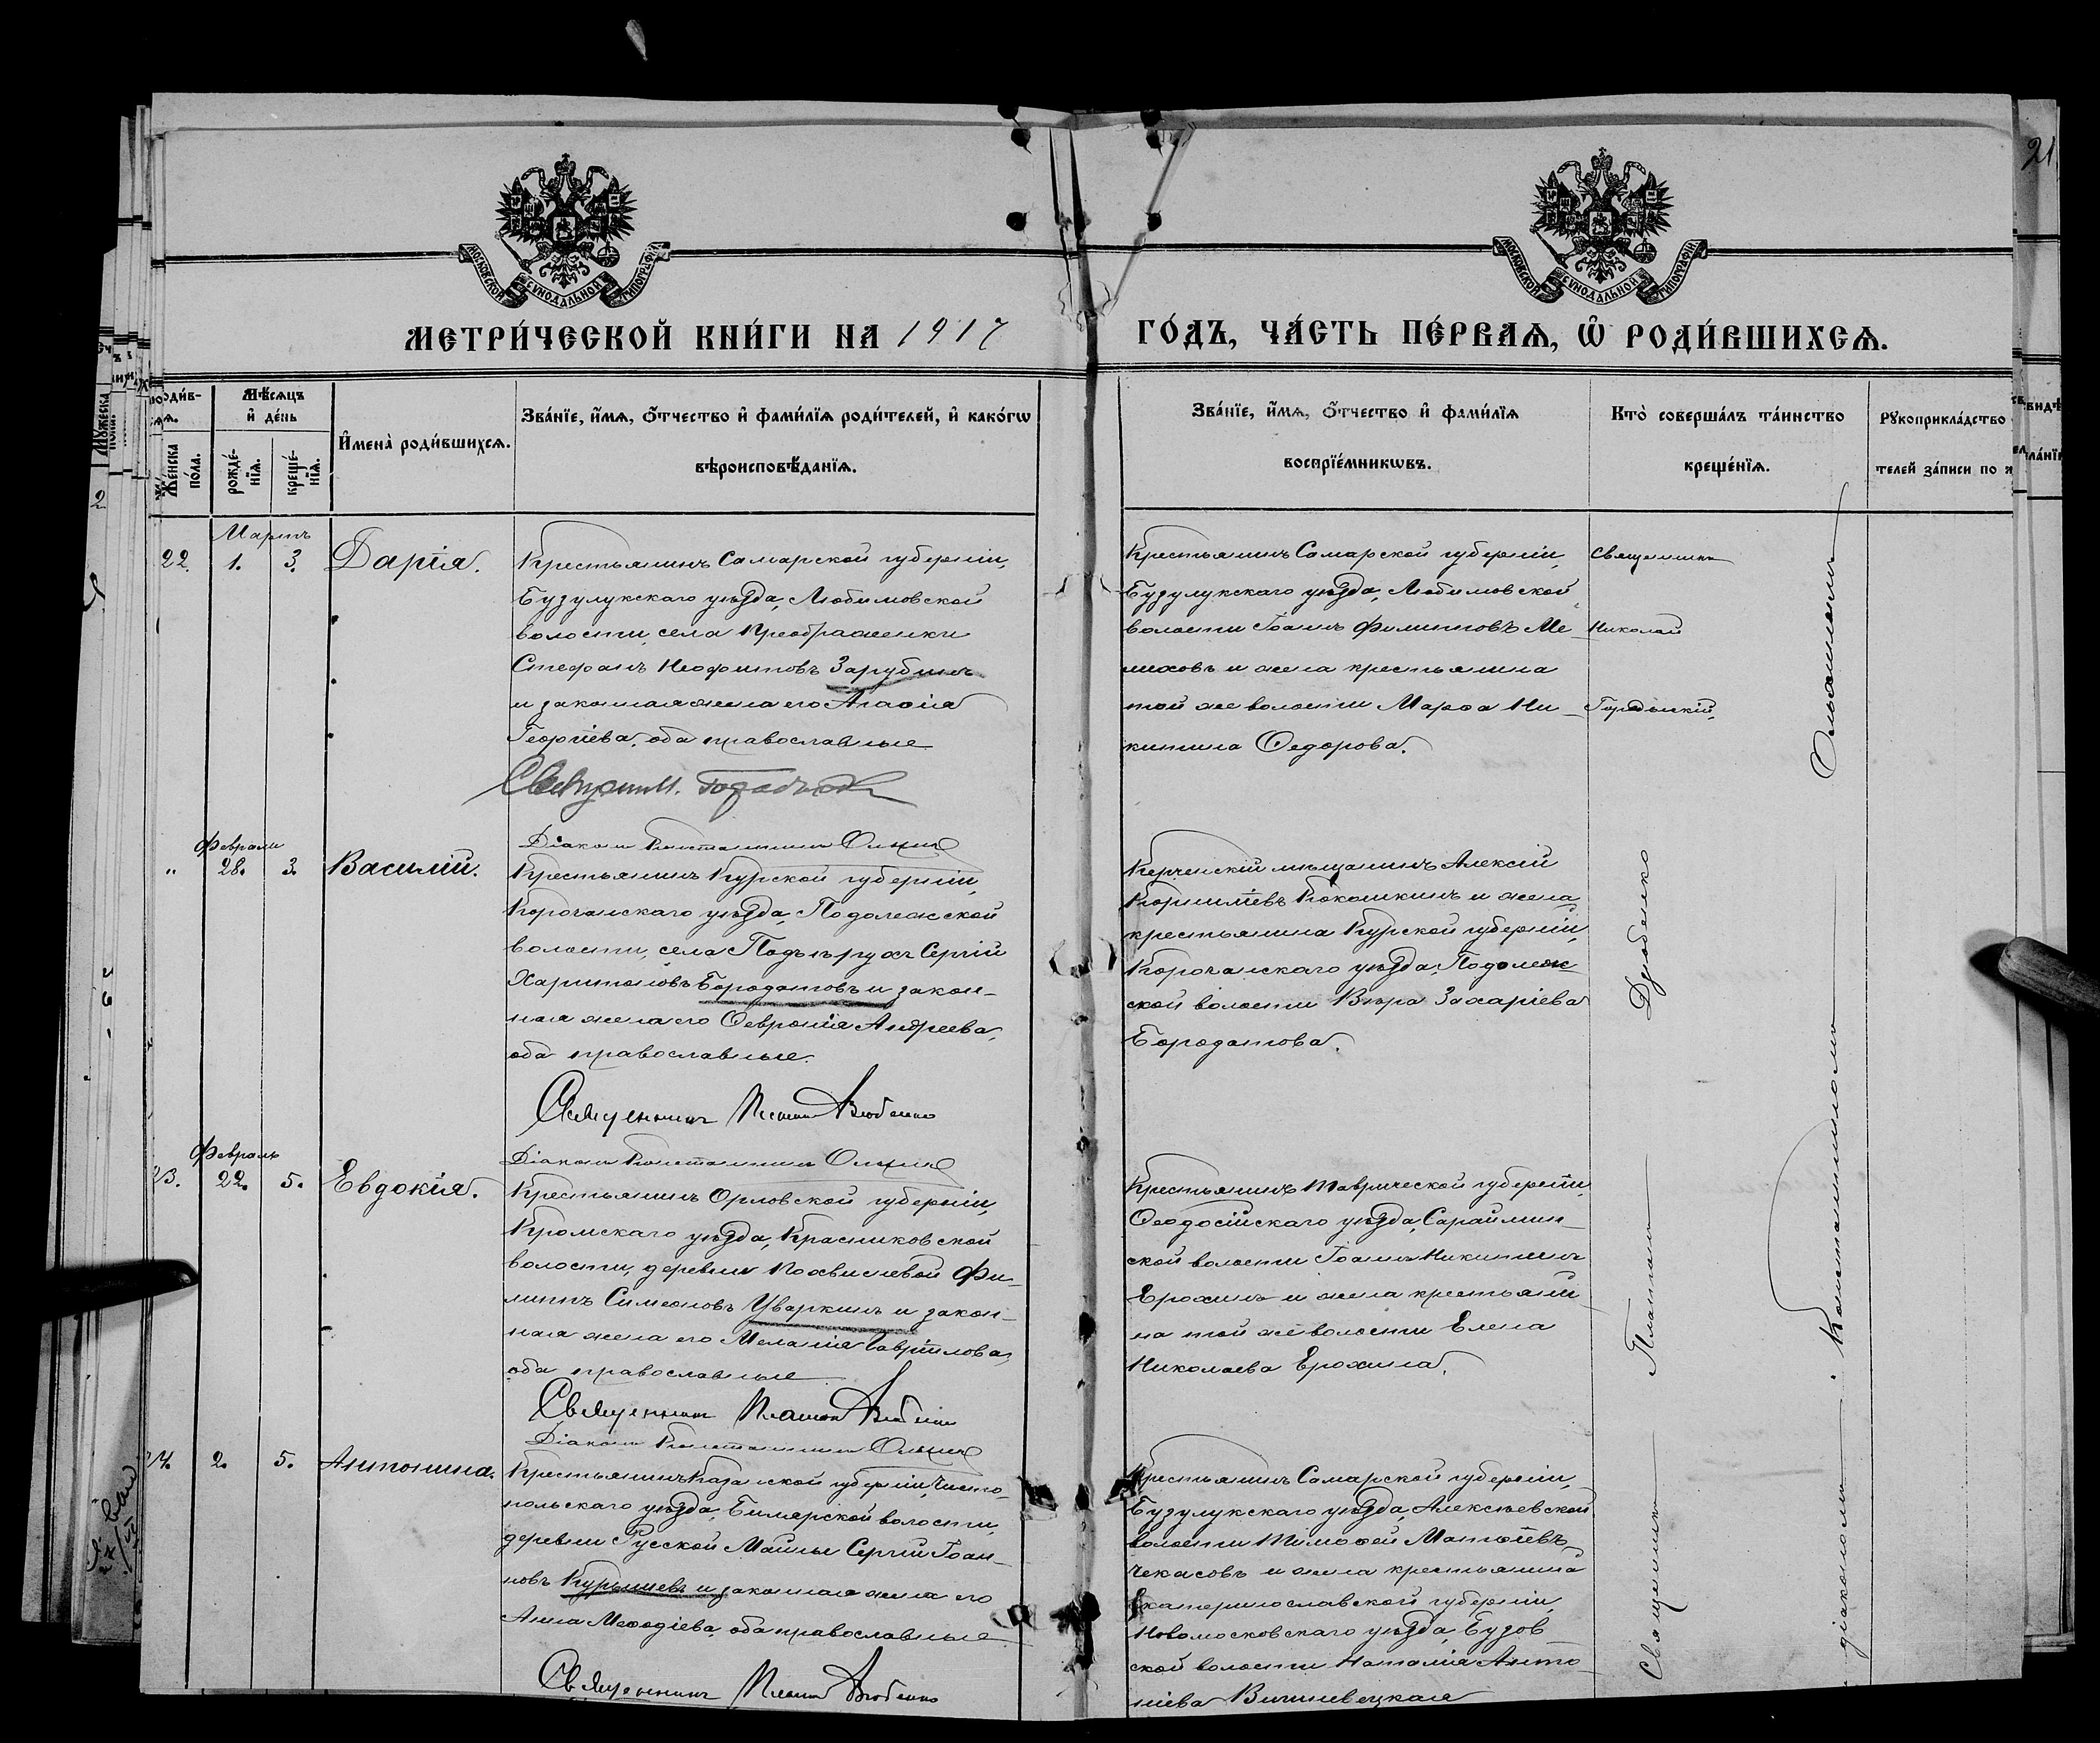 21
МОСКОВСКОЙ СѴНОДАЛЬНОЙ ТИПОГРАФІИ
МОСКОВСКОЙ СѴНОДАЛЬНОЙ ТИПОГРАФІИ
МЕТРИ́ЧЕСКОЙ КНИ́ГИ НА 1917
ГО́ДЪ, ЧА́СТЬ ПЕ́РВАѦ, Ѽ РОДИ́ВШИХСѦ.
Мѣ́сѧцъ и҆ де́нь
Же́нска по́ла.
рожде́нїѧ.
креще́нїѧ.
И҆мена̀ роди́вшихсѧ.
Зва́нїе, и҆́мѧ, ѻ҆́тчество и҆ фами́лїѧ роди́телей, и҆ како́гѡ
вѣроисповѣ́данїѧ.
Зва́нїе, и҆́мѧ, ѻ҆́тчество и҆ фами́лїѧ
воспрїе́мникѡвъ.
Кто̀ соверша́лъ та́инство
креще́нїѧ.
Рꙋкоприкла́дство
телей за́писи по
Мартъ
22. 1. 3. Дарія.
Крестьянинъ Самарской губерніи,
Бузулукскаго уѣзда, Любимовской
волости, села Преображенки
Стефанъ Неофитовъ Зарубинъ
и законная жена его Агафія
Георгіева, оба православные
Крестьянинъ Самарской губерніи,
Бузулукскаго уѣзда, Любимовской
волости Іоаннъ Филипповъ Ме-
лиховъ и жена крестьянина
той же волости Марѳа Ни-
китина Ѳедорова.
Священникъ
Николай
Городыскій
Февраля
" 28. 3. Василій.
Діаконъ Константинъ
Крестьянинъ Курской губерніи,
Корочанскаго уѣзда, Подолежской
волости, села Сергій
Харитоновъ Бородатовъ и закон-
ная жена его Ѳевронія Андреева,
оба православные.
Священникъ Платонъ Дзюбенко
Керченскій мѣщанинъ Алексій
Корниліевъ Кокошкинъ и жена
крестьянина Курской губерніи,
Корочанскаго уѣзда, Подолеж
ской волости Вѣра Захаріева
Бородатова.
Февраль
23. 22. 5. Евдокія.
Діаконъ Константинъ
Крестьянинъ Орловской губерніи,
Кромскаго уѣзда, Красниковской
волости, деревни Похвисневой Фи-
липпъ Симеоновъ Уваркинъ и закон-
ная жена его Меланія Гавріилова,
оба православные
Священникъ Платонъ Дзюбенко
Крестьянинъ Таврической губерніи,
Ѳеодосійскаго уѣзда, Сараймин-
ской волости Іоаннъ Никитинъ
Ерохинъ и жена крестьяни-
на той же волости Елена
Николаева Ерохина.
24. 2. 5. Антонина.
Діаконъ Константинъ
Крестьянинъ Казанской губерніи, Чисто-
польскаго уѣзда, Билярской волости,
деревни Русской Майны Сергій Іоан-
новъ и законная жена его
Анна Меѳодіева, оба православные
Священникъ Платонъ Дзюбенко
Крестьянинъ Самарской губерніи,
Бузулукскаго уѣзда, Алексѣевской
волости Тимоѳей Матѳіевъ
Чекасовъ и жена крестьянина
Екатеринославской губерніи,
Новомосковскаго уѣзда,
ской волости Наталія Анто-
ніева Вишневецкая
Священникъ Платонъ Дзюбенко
діакономъ Константиномъ